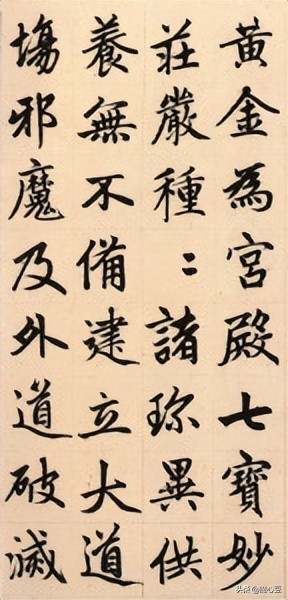 黃金為宮殿七寶妙
莊嚴種〻諸珎異供
養無不備建立大道
塲邪魔及外道破滅
头条